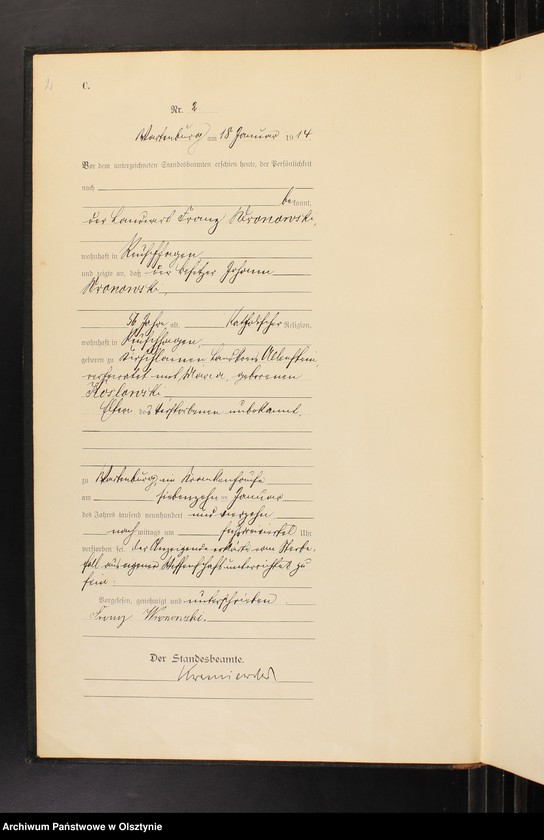 C.
Nr. 2
Wartenburg am 18 Januar 1914
Vor dem unterzeichneten Standesbeamten erschien heute, der Persönlichkeit
nach
bekannt,
der Landwirt Franz Kronowski,
wohnhaft in
und zeigte an, daß der Besitzer Johann
Kronowski,
56 Jahre alt, katholischer Religion,
wohnhaft in
geboren zu Landkreis Allenstein,
verheiratet mit Maria, geborenen
Koslowski
Eltern des Verstorbenen unbekannt,
zu Wartenburg im Krankenhause
am siebenzehnten Januar
des Jahres tausend neunhundert und vierzehn
nachmittags um Uhr
verstorben sei. Der Anzeigende erklärte vom Sterbe-
fall aus eigener Wissenschaft unterrichtet zu
sein.
Vorgelesen, genehmigt und unterschrieben
Franz Kronowski.
Der Standesbeamte.
Archiwum Państwowe w Olsztynie